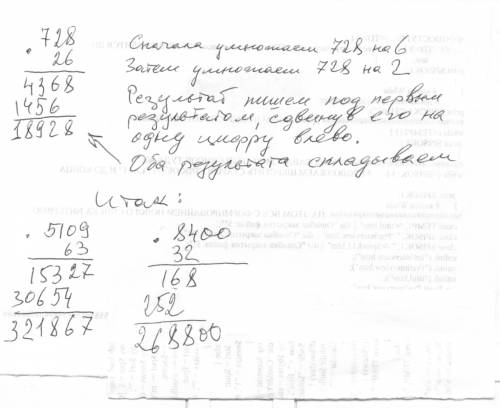 728
26
4368
1456
18928
Сначала умножаем 728 на 6
Затем умножаем 728 на 2
Результат пишем под первым
результатом, сдвинув его на
одну цифру влево.
Оба результата складываем
Итак:
5109
63
15327
30654
321867
8400
32
168
252
268800